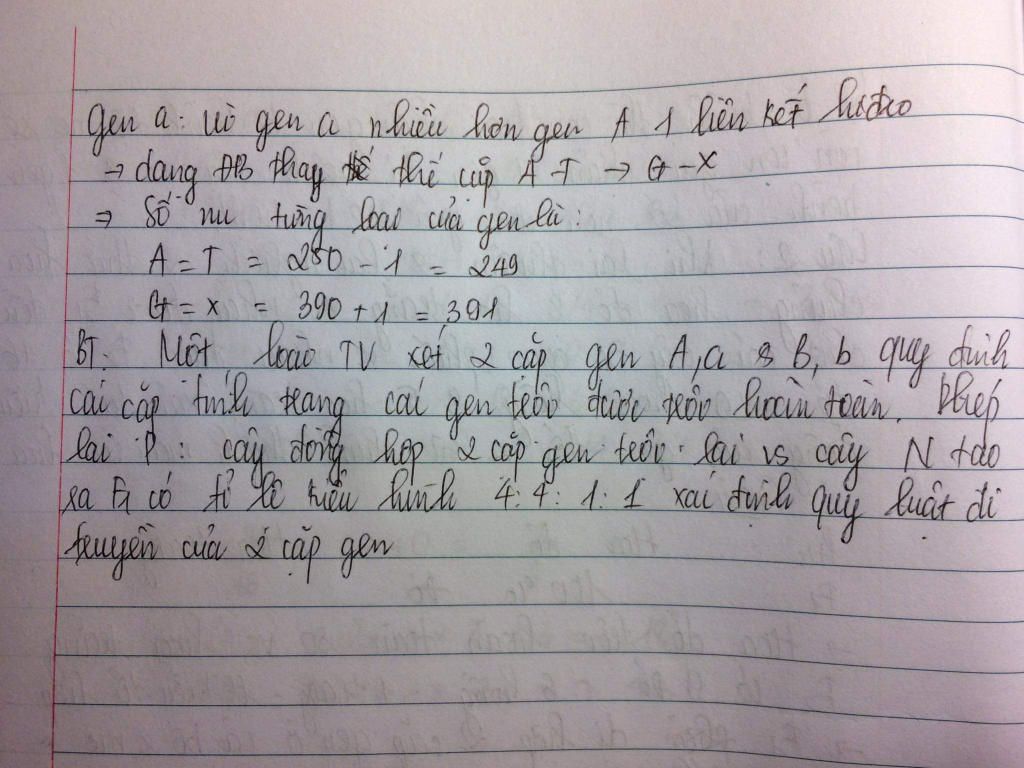 Gen a: vì gen a nhiều hơn gen A 1 liên kết hiđro
→ dạng ĐB thay thế cặp A-T → G-X
⇒ Số nu từng loại của gen là:
A = T = 250 - 1 = 249
G = X = 390 + 1 = 391
BT: Một loài TV xét 2 cặp gen A,a & B,b quy định
các cặp tính trạng các gen trội được trội hoàn toàn. Phép
lai P: cây đồng hợp 2 cặp gen trội lai vs cây N tạo
ra F1 có tỉ lệ kiểu hình 4:4:1:1 xác định quy luật di
truyền của 2 cặp gen